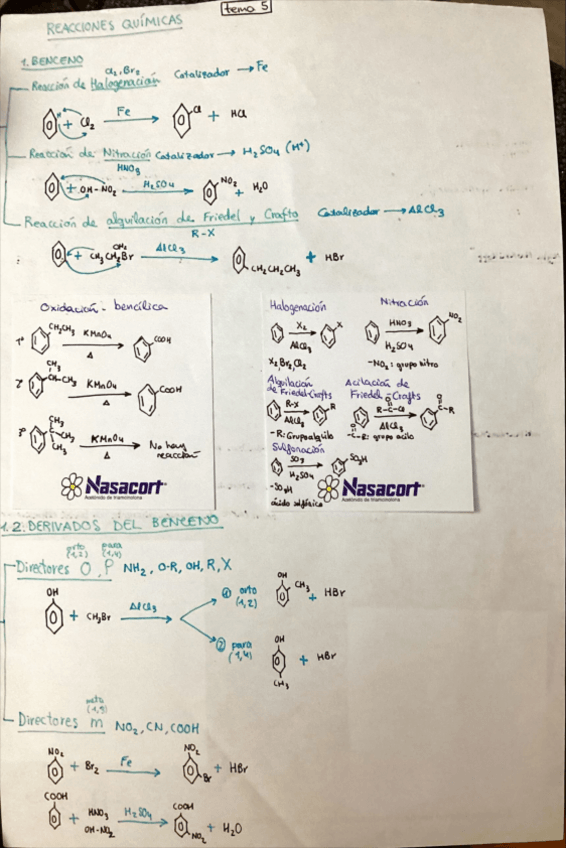 tema 5
REACCIONES QUÍMICAS
1. BENCENO
Cl₂, Br₂
Reacción de Halogenación Catalizador → Fe
+ Cl₂ Fe → Cl + HCl
Reacción de Nitración Catalizador → H₂SO₄ (H⁺)
HNO₃
+ OH-NO₂ H₂SO₄ → NO₂ + H₂O
Reacción de alquilación de Friedel y Crafts Catalizador → AlCl₃
R-X
+ CH₃CH₂Br CH₂ AlCl₃ → CH₂CH₂CH₃ + HBr
Oxidación - bencílica
1º CH₂CH₃ KMnO₄ Δ → COOH
2º CH₃ CH-CH₃ KMnO₄ Δ → COOH
3º CH₃ CH₃ CH₃ KMnO₄ Δ → No hay reacción
Nasacort
Acetónido de triamcinolona
Halogenación
X₂ AlCl₃ → X
X₂ Br₂, Cl₂
Nitración
HNO₃ H₂SO₄ → NO₂
-NO₂: grupo nitro
Alquilación de Friedel-Crafts
R-X AlCl₃ → R
-R: Grupo alquilo
Acilación de Friedel-Crafts
O R-C-Cl AlCl₃ → O C-R
O -C-R: grupo acilo
Sulfonación
SO₃ H₂SO₄ → SO₃H
-SO₃H
ácido sulfónico
Nasacort®
Acetónido de triamcinolona
1.2. DERIVADOS DEL BENCENO
orto (1,2) para (1,4)
Directores O, P NH₂, O-R, OH, R, X
OH + CH₃Br AlCl₃ →
① orto (1,2) OH CH₃ + HBr
② para (1,4) OH CH₃ + HBr
meta (1,3)
Directores m NO₂, CN, COOH
NO₂ + Br₂ Fe → NO₂ Br + HBr
COOH + HNO₃ OH-NO₂ H₂SO₄ → COOH NO₂ + H₂O